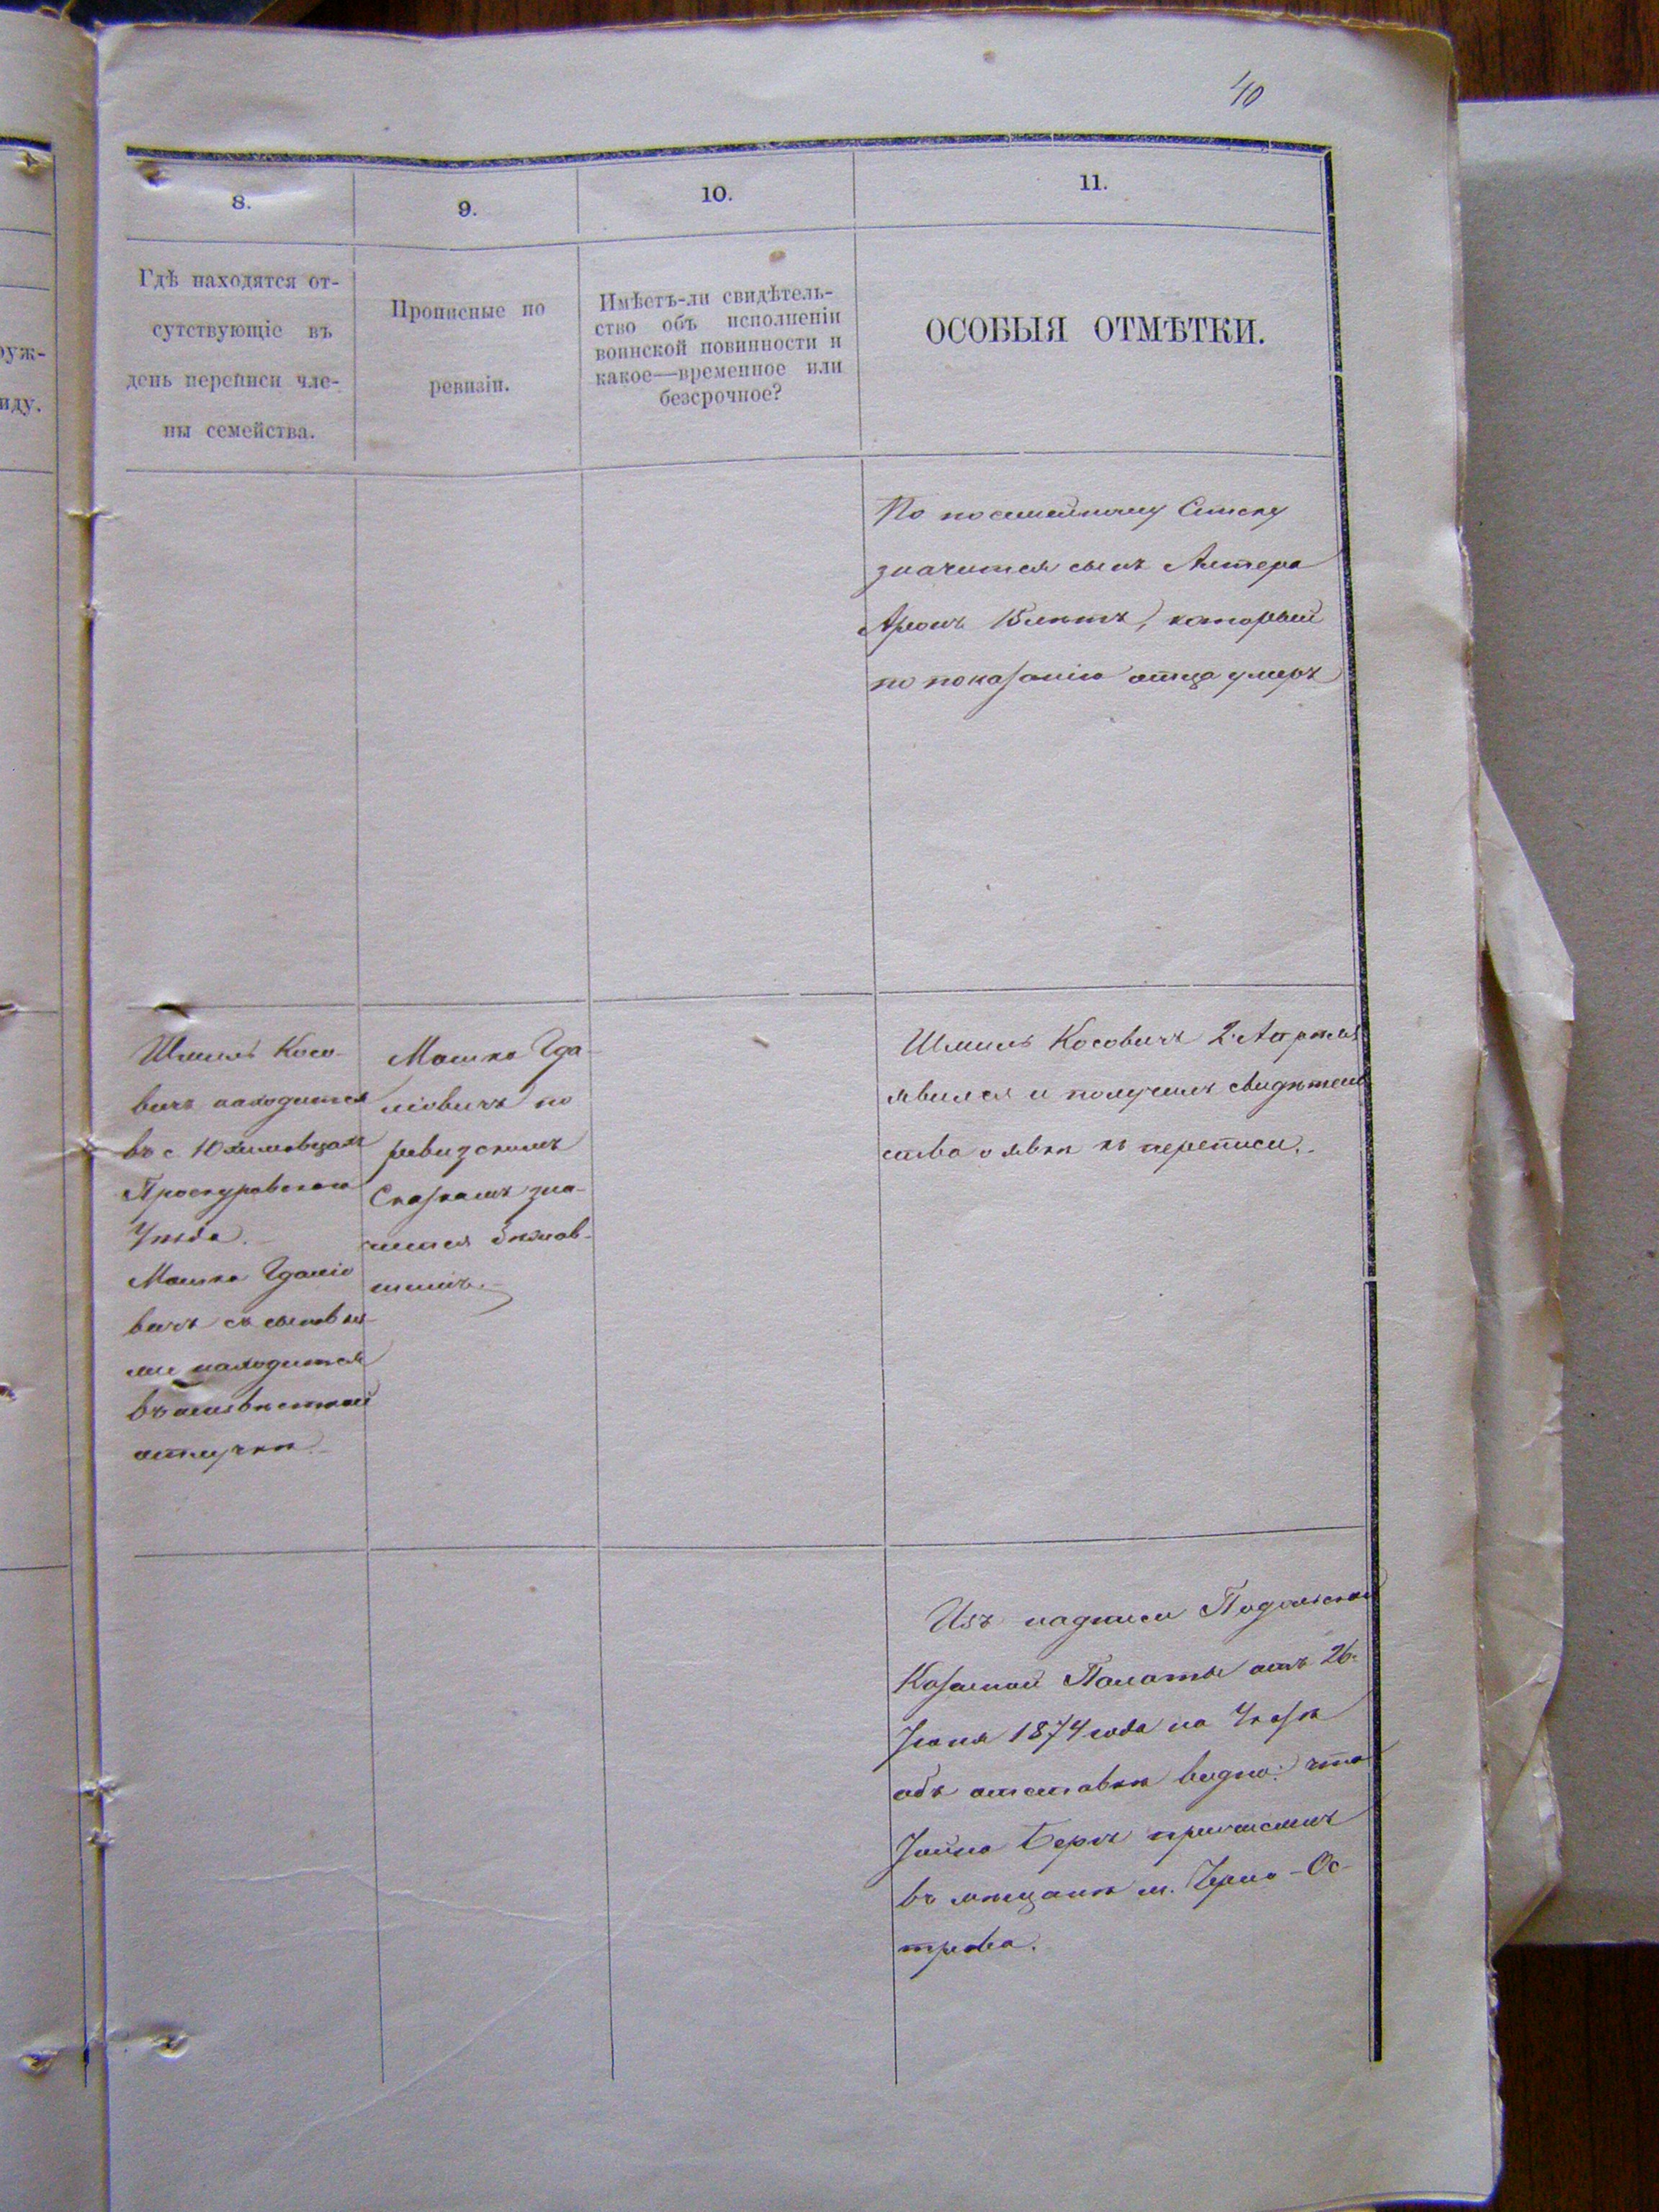 40
8.
9.
10.
11.
Гдѣ находятся от-
сутствующіе въ
день переписи чле-
ны семейства.
Прописные по
ревизіи.
Имѣетъ-ли свидѣтель-
ство объ исполненіи
воинской повинности и
какое—временное или
безсрочное?
ОСОБЫЯ ОТМѢТКИ.
По посемейному Списку
значится сынъ Антера
Аронъ 15 лѣтъ, который
по показанію отца умеръ
Шмиль Косо-
вичъ находится
въ с.
Проскуровскаго
Уѣзда.
Машко Гдалiо
вичъ съ сыновья-
ми находится
въ неизвѣстной
отлучкѣ.
Машко Гда-
ліовичъ по
ревизскимъ
Сказкамъ зна-
чится
Шмиль Косовичъ 2 Апрѣля
явился и получилъ свидѣтель
ство о явкѣ къ переписи.
Изъ надписи Подольской
Казенной Палаты отъ 26
Іюня 1874 года на Указѣ
объ отставкѣ видно: что
Іойна Беръ причисленъ
въ мѣщане м. Черно-Ос-
трова.
оруж-
иду.